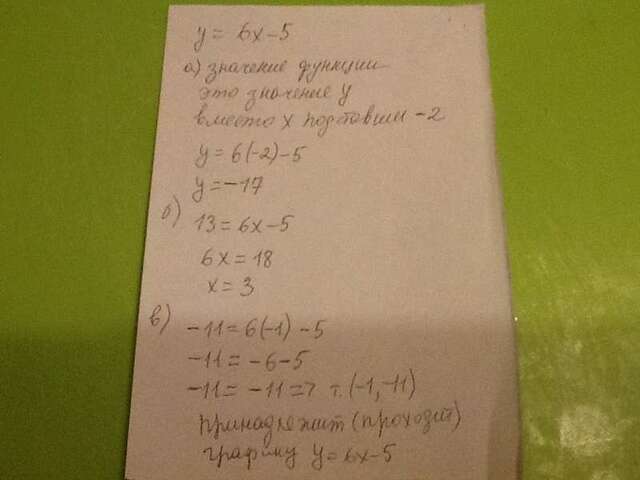 y = 6x-5
а) значение функции
это значение y
вместо x подставим -2
y = 6(-2)-5
y = -17
б)
13 = 6x-5
6x = 18
x = 3
в)
-11 = 6(-1) -5
-11 = -6-5
-11 = -11 => т. (-1, -11)
принадлежит (проходит)
графику y = 6x-5